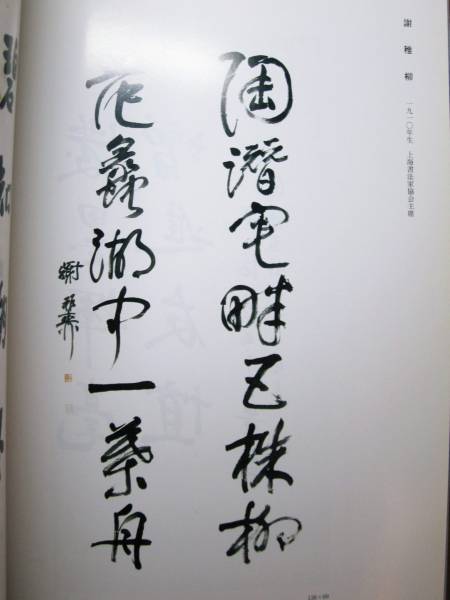 謝稚柳
一九一〇年生 上海書法家協会主席
陶潛宅畔五株柳
范蠡湖中一葉舟
謝稚柳